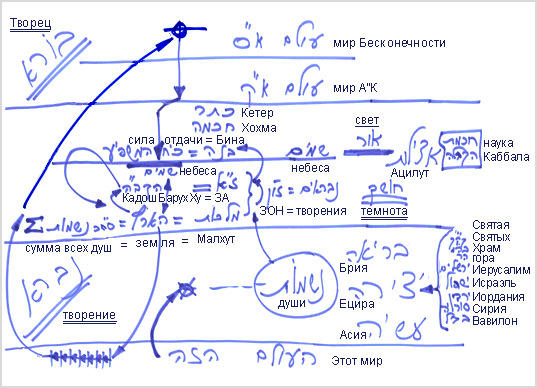 Творец
בורא
עולם א"ס мир Бесконечности
עולם א"ק мир А"К
כתר Кетер
חכמה Хохма
сила отдачи = Бина
בינה = כח המשפיע
свет
אור
אצילות
Ацилут
חכמת הקבלה
наука Каббала
שמים
небеса
שמים
небеса
ז"א = הקב"ה
КадошБарухХу = ЗА
נבראים = זו"ן
ЗОН = творения
חושך
темнота
Σ נשמות = הארץ = מלכות
сумма всех душ = земля = Малхут
נברא
творение
נשמות
души
בריאה
Брия
יצירה
Ецира
עשיה
Асия
Святая
Святых
Храм
гора
Иерусалим
Исраэль
Иордания
Сирия
Вавилон
העולם הזה Этот мир